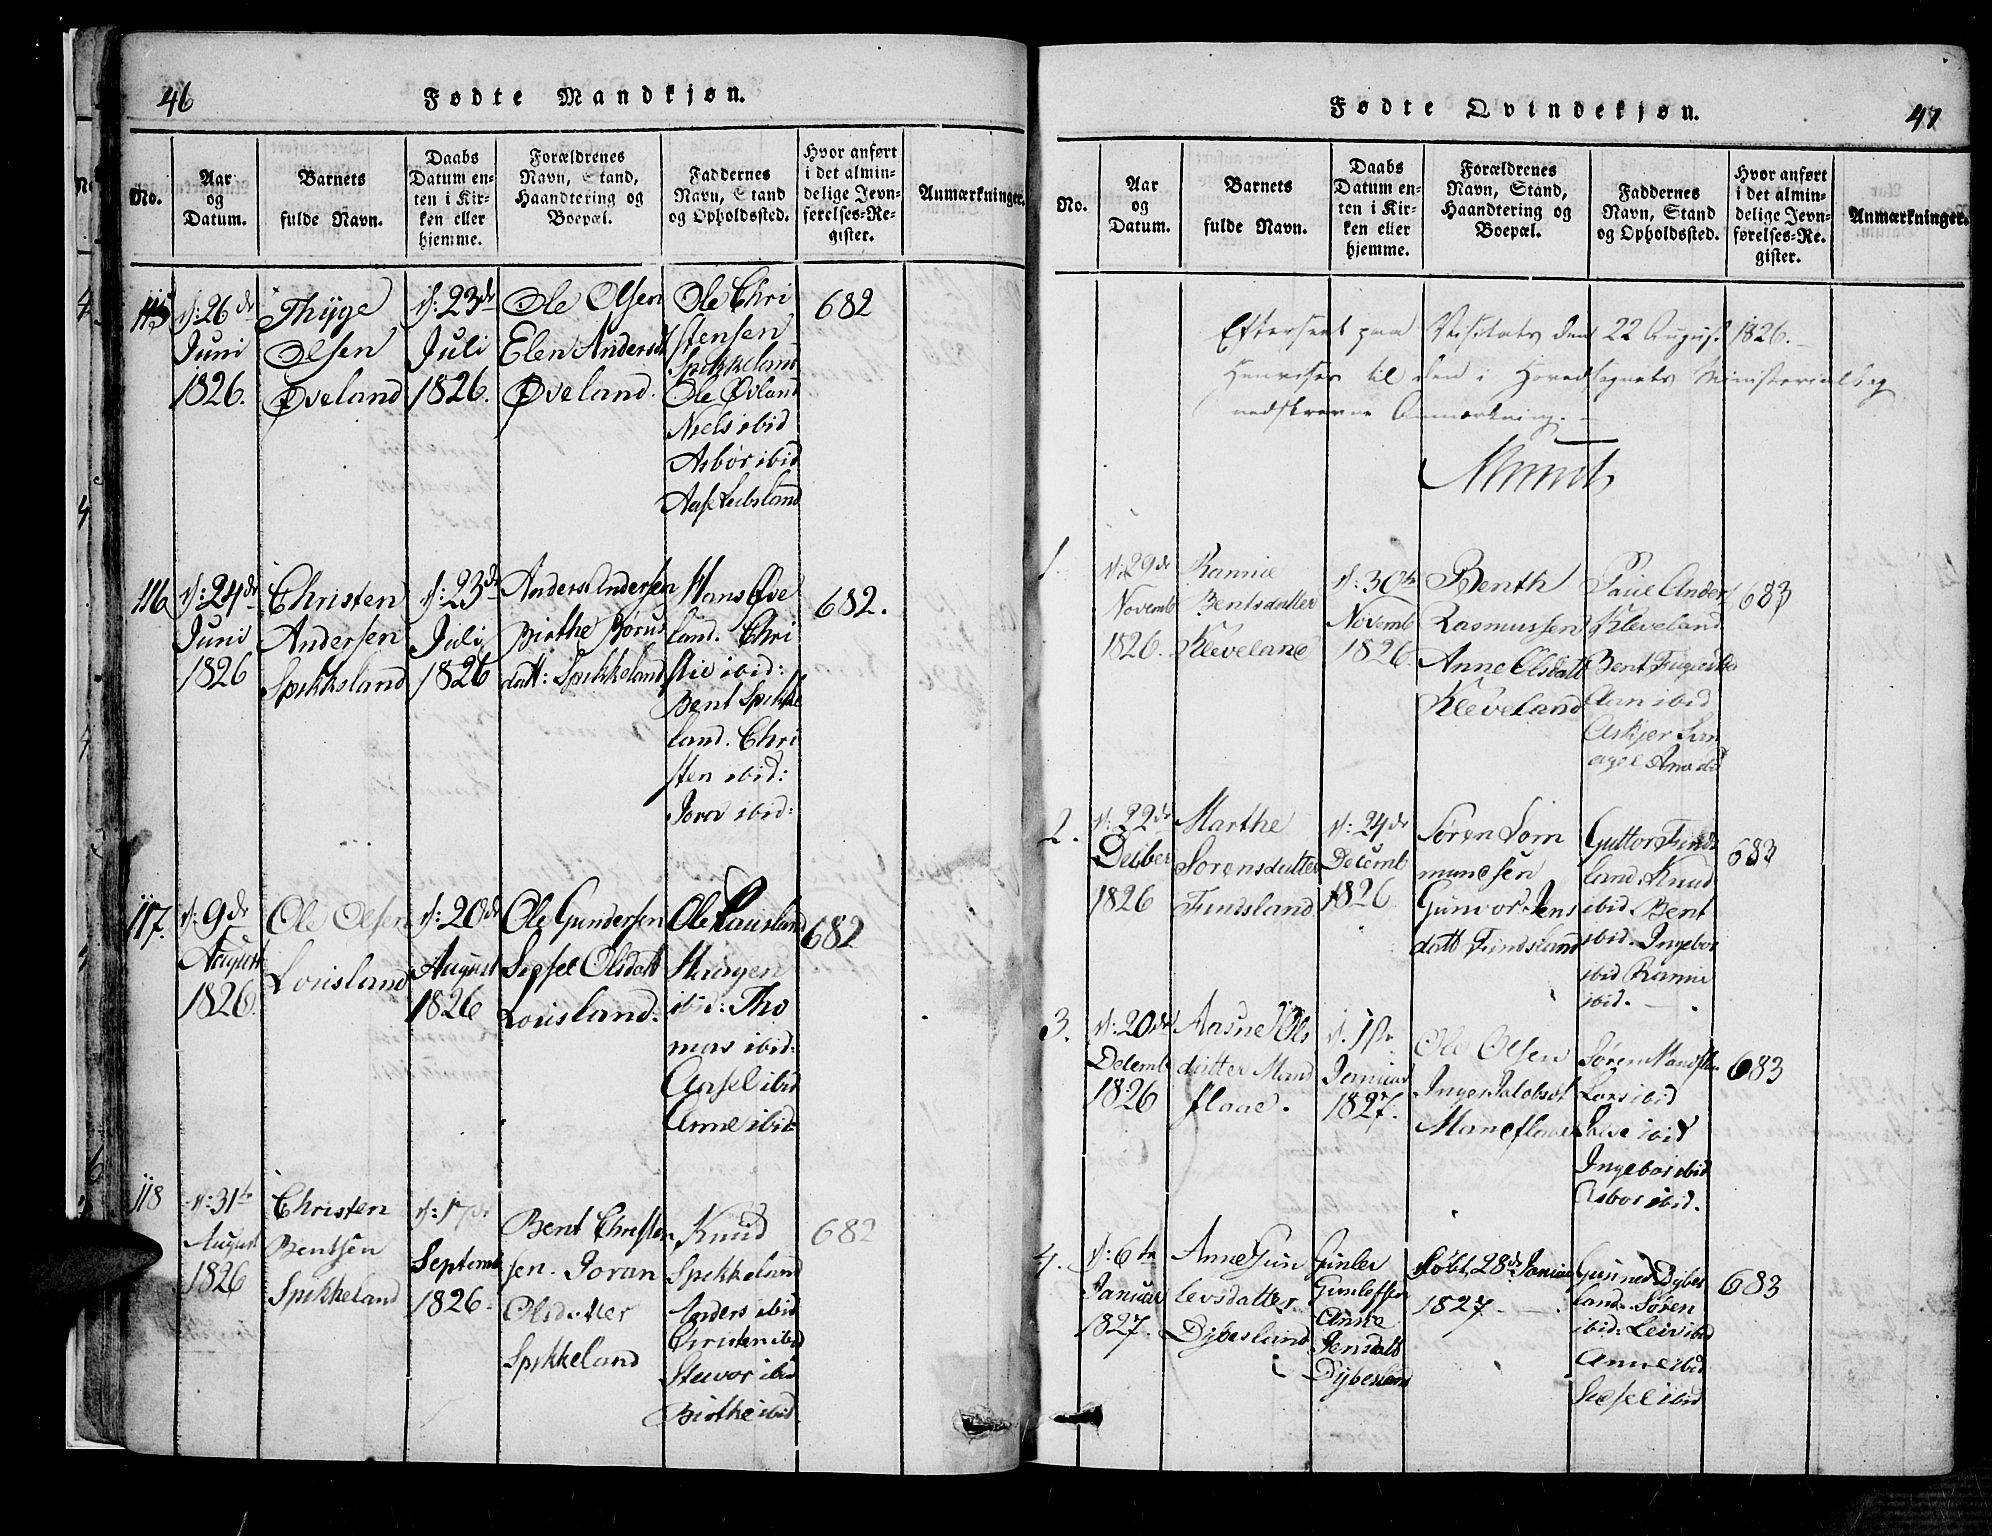 46
Fødte Mandkjøn.
No.
Aar
og
Datum.
Barnets
fulde Navn.
Daabs
Datum en-
ten i Kir-
ken eller
hjemme.
Forældrenes
Navn, Stand,
Haandtering og
Boepæl.
Faddernes
Navn, Stand
og Opholdssted.
Hvor anført
i det almin-
delige Jevn-
førelses-Re-
gister.
Anmærkninger.
115
d: 26 de
Juni
1826.
Thÿge
Olsen
Øveland
d: 23 de
Juli
1826.
Ole Olsen
Elen Andersd
Øveland.
Ole Chri
stensen
Spikkeland
Ole Øvland
Niels ibid
Asbør ibid
Aase Leibsland
682
116
d: 24 de
Juni
1826
Christen
Andersen
Spikksland
d: 23 de
Juli
1826
Anders Andersen
Birthe Børus
datt: Spikkeland
Hans Øve
land. Chri
stie ibid:
Bent Spikke
land. Chri
sten ibid:
Joren ibid:
682.
117.
d: 9 de
August
1826.
Ole Olsen
Loüsland
d: 20 de
August
1826
Ole Gundersen
Sissel Olsdatt
Loüsland.
Ole Lauslan
Haagen
ibid: Tho
mas ibid:
Aasel ibid
Anne ibid:
682
118
d: 31 te
August
1826
Christen
Bentsen
Spikkeland
d: 17 de
Septemb
1826.
Bent Christen
sen. Joran
Olsdatter
Spikkeland
Knud
Spikkeland
Anders ibid
Christen ibid
Steevor ibid
Birthe ibid.
682
47
Fødte Qvindekjøn.
No.
Aar
og
Datum.
Barnets
fulde Navn.
Daabs
Datum en-
ten i Kir-
ken eller
hjemme.
Forældrenes
Navn, Stand,
Haandtering og
Boepæl.
Faddernes
Navn, Stand
og Opholdssted.
Hvor anført
i det almin-
delige Jevn-
førelses-Re-
gister.
Anmærkninger.
Efterseet paa Visitats den 22 August 1826.
Henviser til den i Hovedsognets Ministerialbog
nedskrevne Anmærkning.
Munch
1.
d: 29 de
Novemb
1826.
Rannie
Bentsdatter
Kleveland
d: 30 te
Novemb
1826.
Benth
Rasmussen
Anne Olsdatt
Kleveland
Paul Ander
Kleveland
ibid
683
2.
d: 22 de
Decber
1826
Marthe
Sorensdatter
Findsland
d: 24 de
Decemb
1826
Søren Lom
mundsen
Gunvor Jens
datt Findsland
Guttor Finds
land. Knud
ibid. Bent
ibid. Ingebor
ibid Ranne
ibid.
683
3.
d: 20 de
Decemb
1826
Aasne Ols
datter Mand
flaae.
d. 1 ste
Januar
1827.
Ole Olsen
Inger Jacobsd
Maneflaae
Søren Manfla
Lars ibid
ibid
Ingebor ibid
Asbor ibid.
683
4.
d: 6 te
Januar
1827.
Anne Gun
levsdatter
Dÿbesland
Gunlev
Gunlefsen
Anne
Jensdatt
Dÿbesland
døbt 28 de Januar
1827.
Gunner Dybes
land. Søren
ibid: Leiv ibid
Anne ibid
Sissel ibid
683